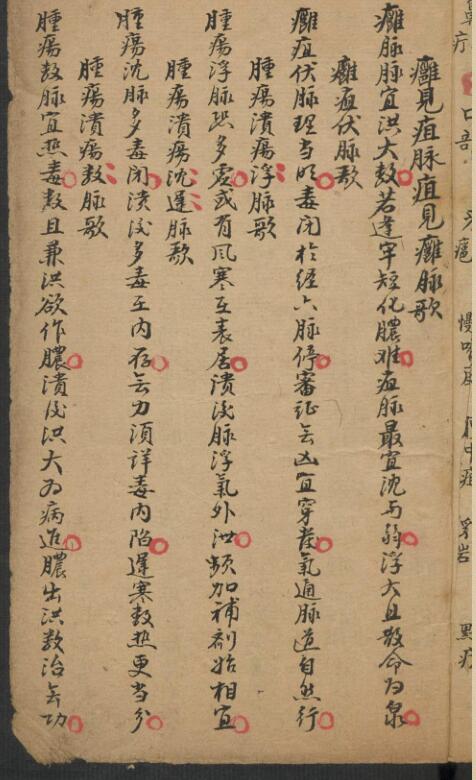 癰見疽脉疽見癰脉歌
癰脉脉宜洪大数若逢牢短化膿难疽脉最宜沈与弱浮大且散命为泉
癰疽伏脉歌
癰疽伏脉理当明毒闭於經六脉停審证无凶宜穿發氣通脉道自然行
腫瘍潰瘍浮脉歌
腫瘍浮脉恐多虚或有风寒在表居潰後脉浮氣外泄频加補剂始相宜
腫瘍潰瘍沈遲脉歌
腫瘍沈脉多毒闭溃後多毒在内存无力须详毒内陷遲寒数热更当分
腫瘍潰瘍数脉歌
腫瘍数脉宜热毒数且兼洪欲作膿潰後洪大为病進膿出洪数治无功